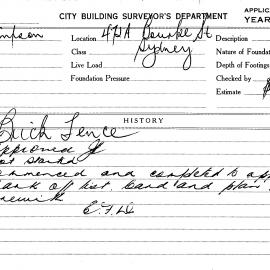 CITY BUILDING SURVEYOR'S DEPARTMENT
APPLIC
YEAR
mpson
Location 424A Bourke St
Description
Class Sydney
Nature of Foundation
Live Load
Depth of Footings
Foundation Pressure
Checked by
Estimate $
HISTORY
Brick Fence
pproved
ot started
mmenced and completed to app
ark off list. Card and plan
E.F.D.